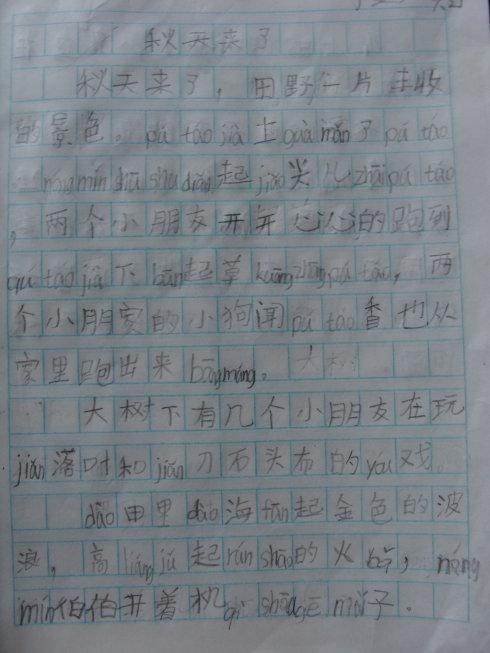 秋天来了
秋天来了，田野一片丰收
的景色。pú táo jià 上 guà mǎn 了 pú táo
nóng mín shū shu diǎn 起 jiǎo 尖儿 zhāi pú táo
，两个小朋友开开心心的跑到
pú táo jià 下 bān 起草 kuāng zhuāng pú táo，两
个小朋家的小狗闻 pú táo 香也从
家里跑出来 bāng máng。大树
大树下有几个小朋友在玩
jiǎn 落叶和 jiǎn 刀石头布的 yóu 戏。
dào 田里 dào 海 fān 起金色的波
浪，高 liáng jǔ 起 rán shāo 的火 bǎ，nóng
mín 伯伯开着机 qì shōu gē 子．